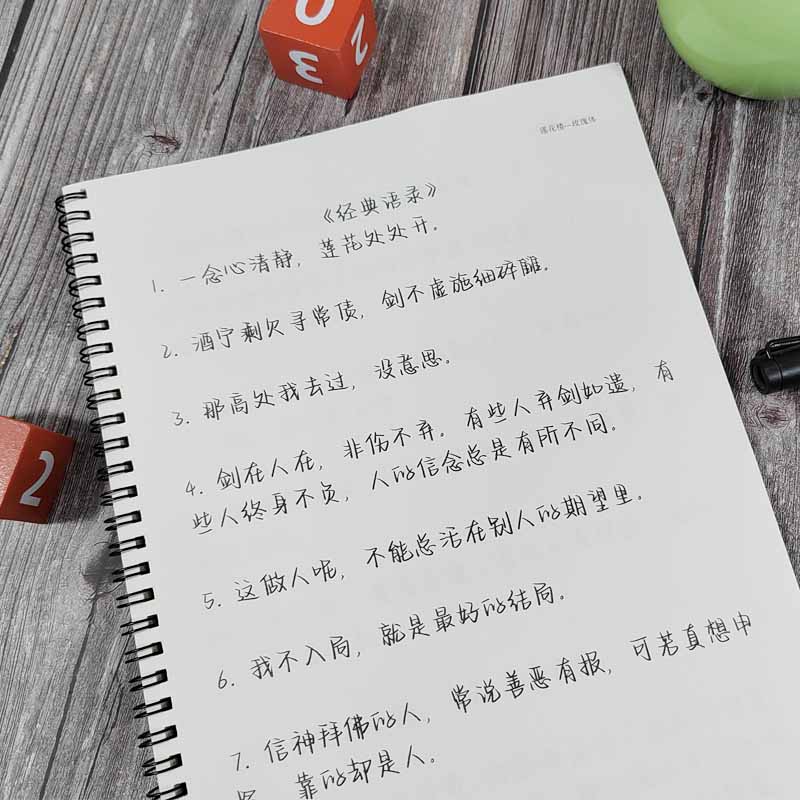 莲花楼—玫瑰体
《经典语录》
1. 一念心清静，莲花处处开。
2. 酒宁剩欠寻常债，剑不虚施细碎雠。
3. 那高处我去过，没意思。
4. 剑在人在，非伤不弃。有些人弃剑如遗，有
些人终身不负，人的信念总是有所不同。
5. 这做人呢，不能总活在别人的期望里。
6. 我不入局，就是最好的结局。
7. 信神拜佛的人，常说善恶有报，可若真想申
靠的却是人。
0
3
2
2